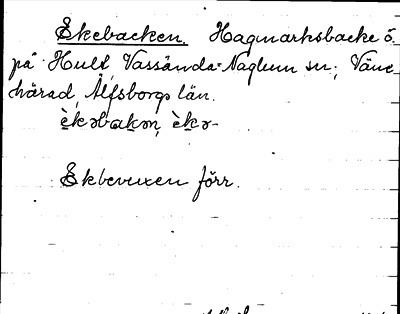 Ekebacken. Hagmarksbacke ö.
på Hult Vassända-Naglum sn; Väne
härad, Älfsborgs län.
èkəbakən, èkə-
Ekbevuxen förr.